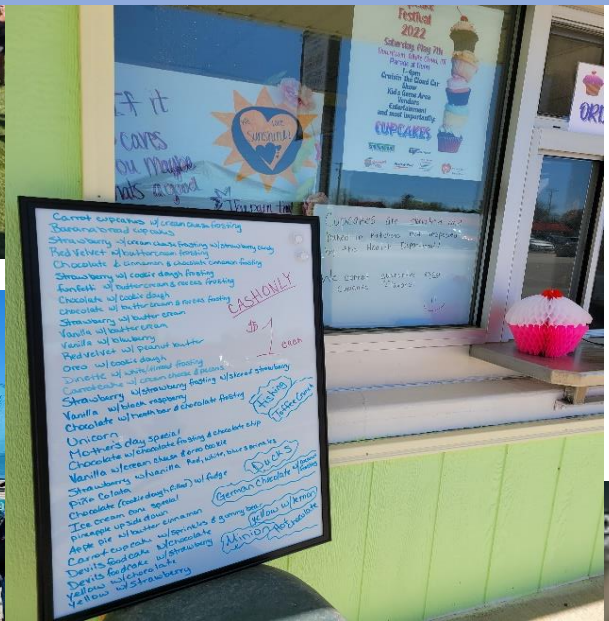 Festival
2022
Saturday, May 7th
Parade at
1-4pm
Cruisin The Coast Car
Show
Kids Game Area
Vendors
Entertainment
and most importantly
CUPCAKES
ORD
If it
Caves
ou Maybe
hats a good
SUNSHINE!
Cupcakes are
baked in kitchens not inspected
by the Health Department
Carrot cupcakes w/cream cheese frosting
Banana bread cupcakes
Strawberry w/cream cheese frosting w/strawberry candy
Red Velvet w/buttercream frosting
Chocolate & cinnamon & chocolate cinnamon frosting
Strawberry w/ cookie dough frosting
funfetti w/ buttercream & nerds frosting
Chocolate w/cookie dough
chocolate w/ buttercream & nerds frosting
Strawberry w/butter cream
Vanilla w/buttercream
Vanilla w/ blueberry
Redvelvet w/ peanut butter
Oreo w/cookie dough
w/ white/almond frosting
Carrot cake w/ cream cheese & pecans
Strawberry w/strawberry frosting w/sliced strawberry
Vanilla w/black raspberry
Chocolate w/heath bar & chocolate frosting
Unicorn
Mother's day special
Chocolate w/chocolate frosting & chocolate chip
Vanilla w/cream cheese & oreo cookie
Strawberry w/vanilla Red, white, blue sprinkles
Piña Colata
Chocolate (cookie dough filled) w/ fudge
Ice cream cone special
pineapple upside down
Apple pie w/butter cinnamon
Carrot cupcake w/sprinkles & gummy bear
Devils foodcake w/chocolate
Devils foodcake w/ strawberry
Yellow w/chocolate
Yellow w/strawberry
CASH ONLY
$1
each
fishing
Toffee Crunch
Ducks
German Chocolate w/
frosting
Yellow w/lemon
Minion